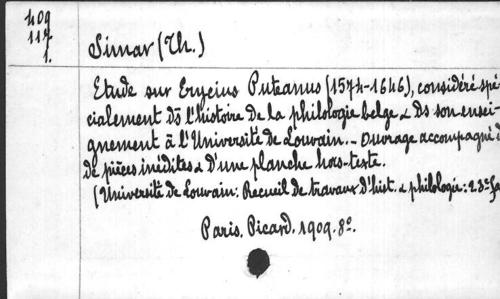 409
117
1.
Simar (Th.)
Etude sur Erycius Puteanus (1574-1646), considéré spé-
cialement ds l'histoire de la philologie belge & ds son ensei-
gnement à l'Université de Louvain. - Ouvrage accompagné d
de pièces inédites & d'une planche hors-texte.
(Université de Louvain: Recueil de travaux d'hist. & philologie: 23e fa
Paris. Picard. 1909. 8o.